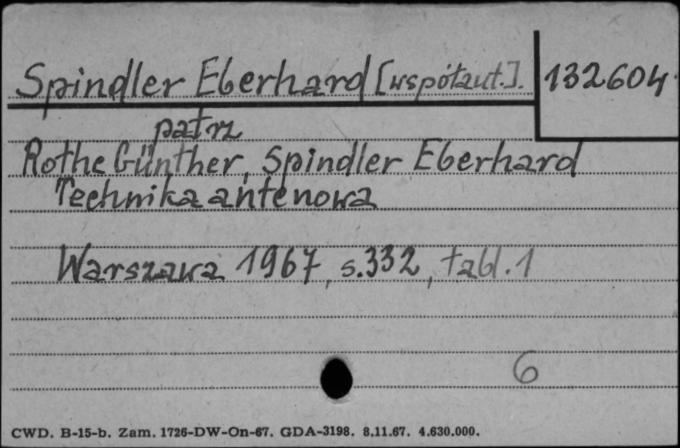 Spindler Eberhard [współaut.]. 132604
patrz
Rothe Günther, Spindler Eberhard
Technika antenowa
Warszawa 1967, s.332, tabl.1
6
CWD. B-15-b. Zam. 1726-DW-On-67. GDA-3198. 8.11.67. 4.630.000.